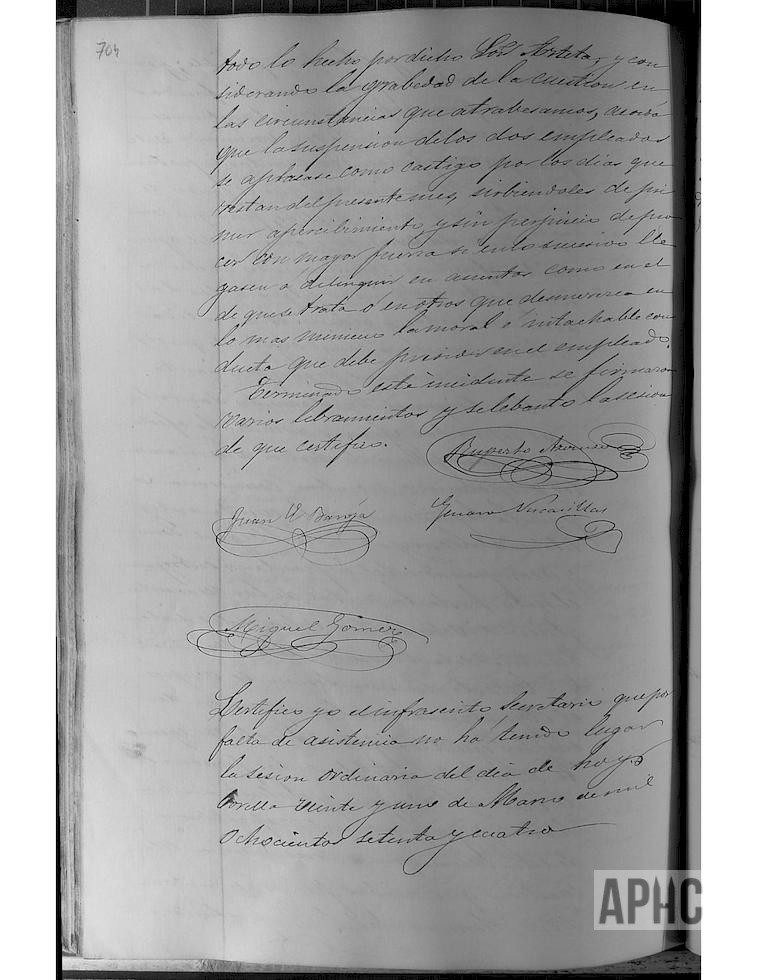 704
todo lo hecho por dicho Luis Arteta; y con
siderando la grabedad de la cuestion en
las circunstancias que atrabesamos, acordó
que la suspension de los dos empleados
se aplazase como castigo por los dias que
restan del presente mes, sirbiendoles de pri
mer apercibimiento y sin perjuicio de proce
cer con mayor fuerza si en lo sucesivo lle
gasen á delinquir en asuntos como en el
de que se trata o en otros que desmerezca en
lo mas minimo la moral é intachable con
ducta que debe presidir en el empleado.
Terminado este incidente se firmaron
varios libramientos y se lebantó la sesion
de que certifico.
Ruperto
Juan Baroja
Genaro
Miguel Gomez
Certifico yo el infrascrito Secretario que por
falta de asistencia no há tenido lugar
la sesion ordinaria del dia de hoy.
veinte y uno de Marzo de mil
ochocientos setenta y cuatro
APHC